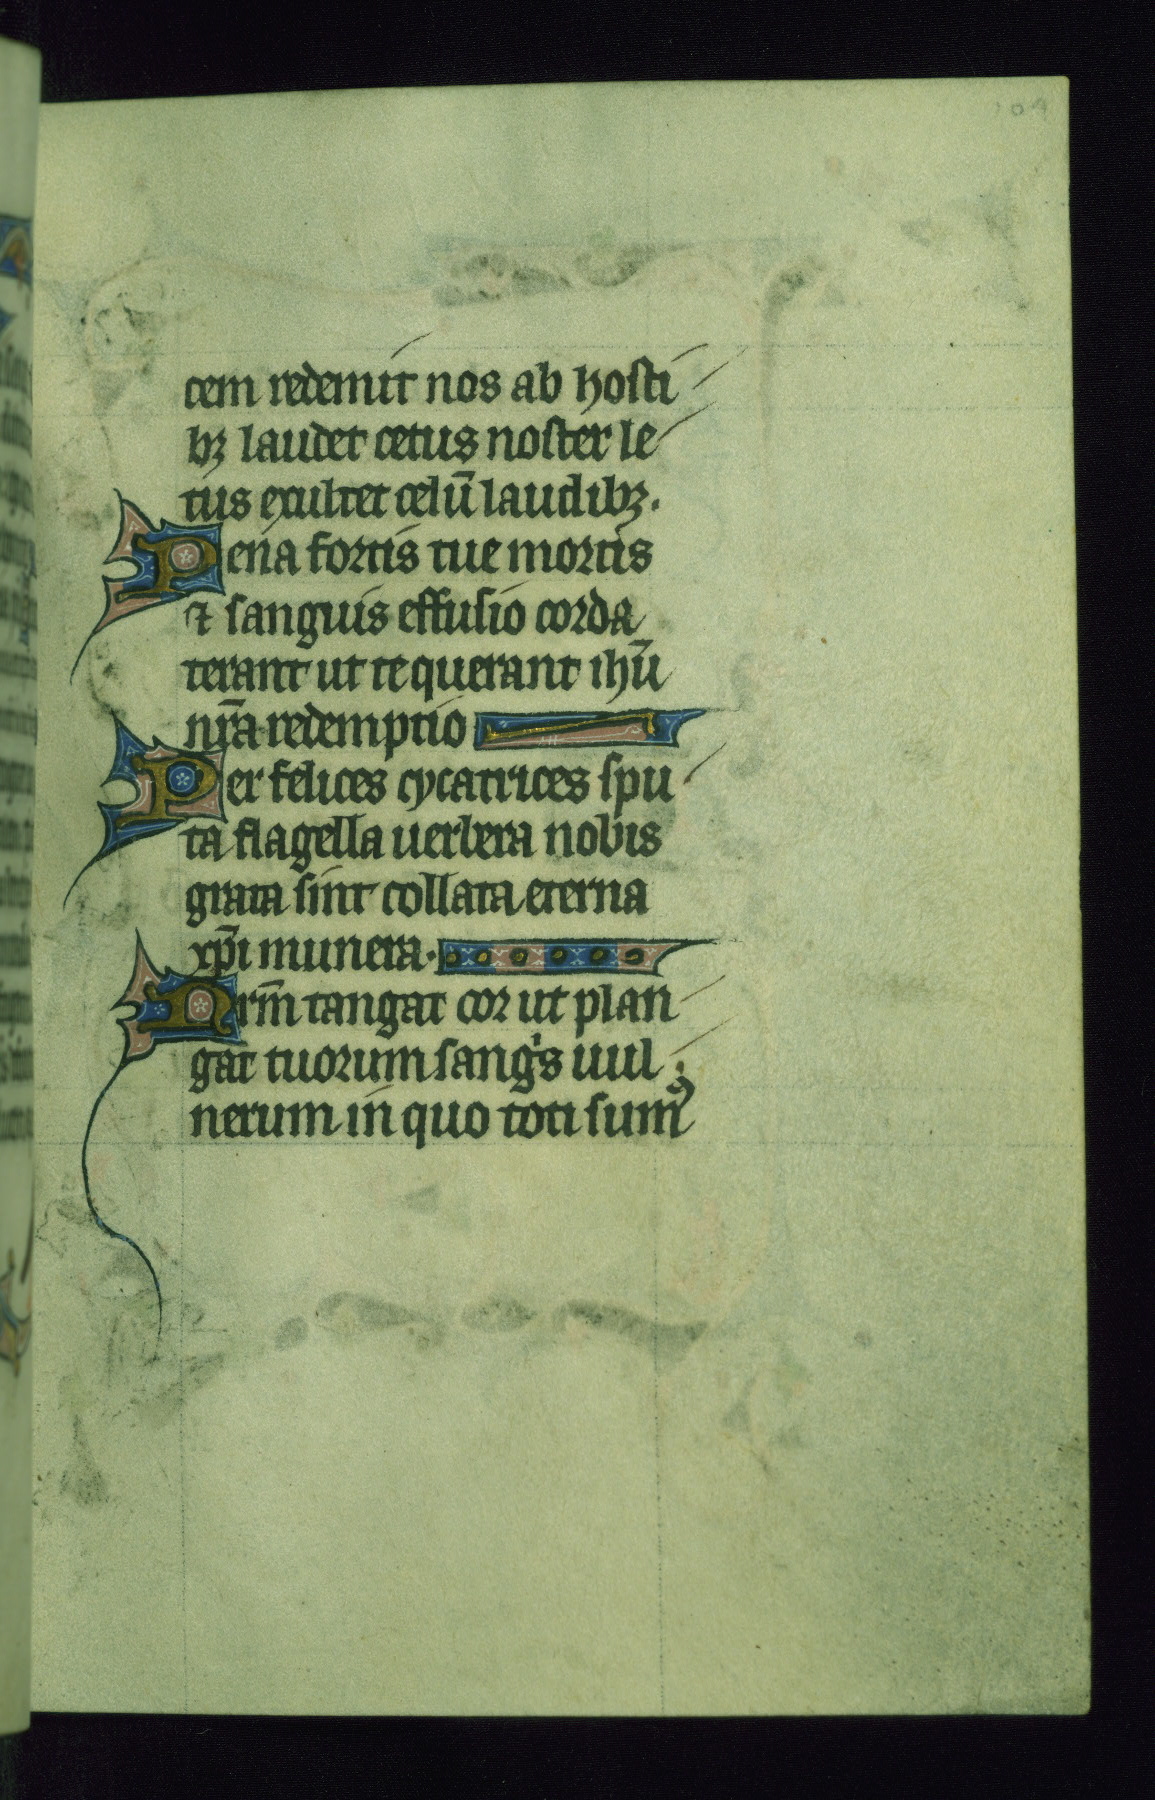 cem redemit nos ab hosti
bꝫ laudet cetus noster le
tus exultet celū laudibꝫ.
Pena fortis tue mortis
⁊ sanguis effusio corda
terant ut te querant ihū
nr̄a redemptio
Per felices cycatrices spu
ta flagella uerbera nobis
grata sint collata eterna
xp̄i munera.
Nr̄m tangat cor ut plan
gat tuorum sangⁱs uul
nerum in quo toti sumꝰ